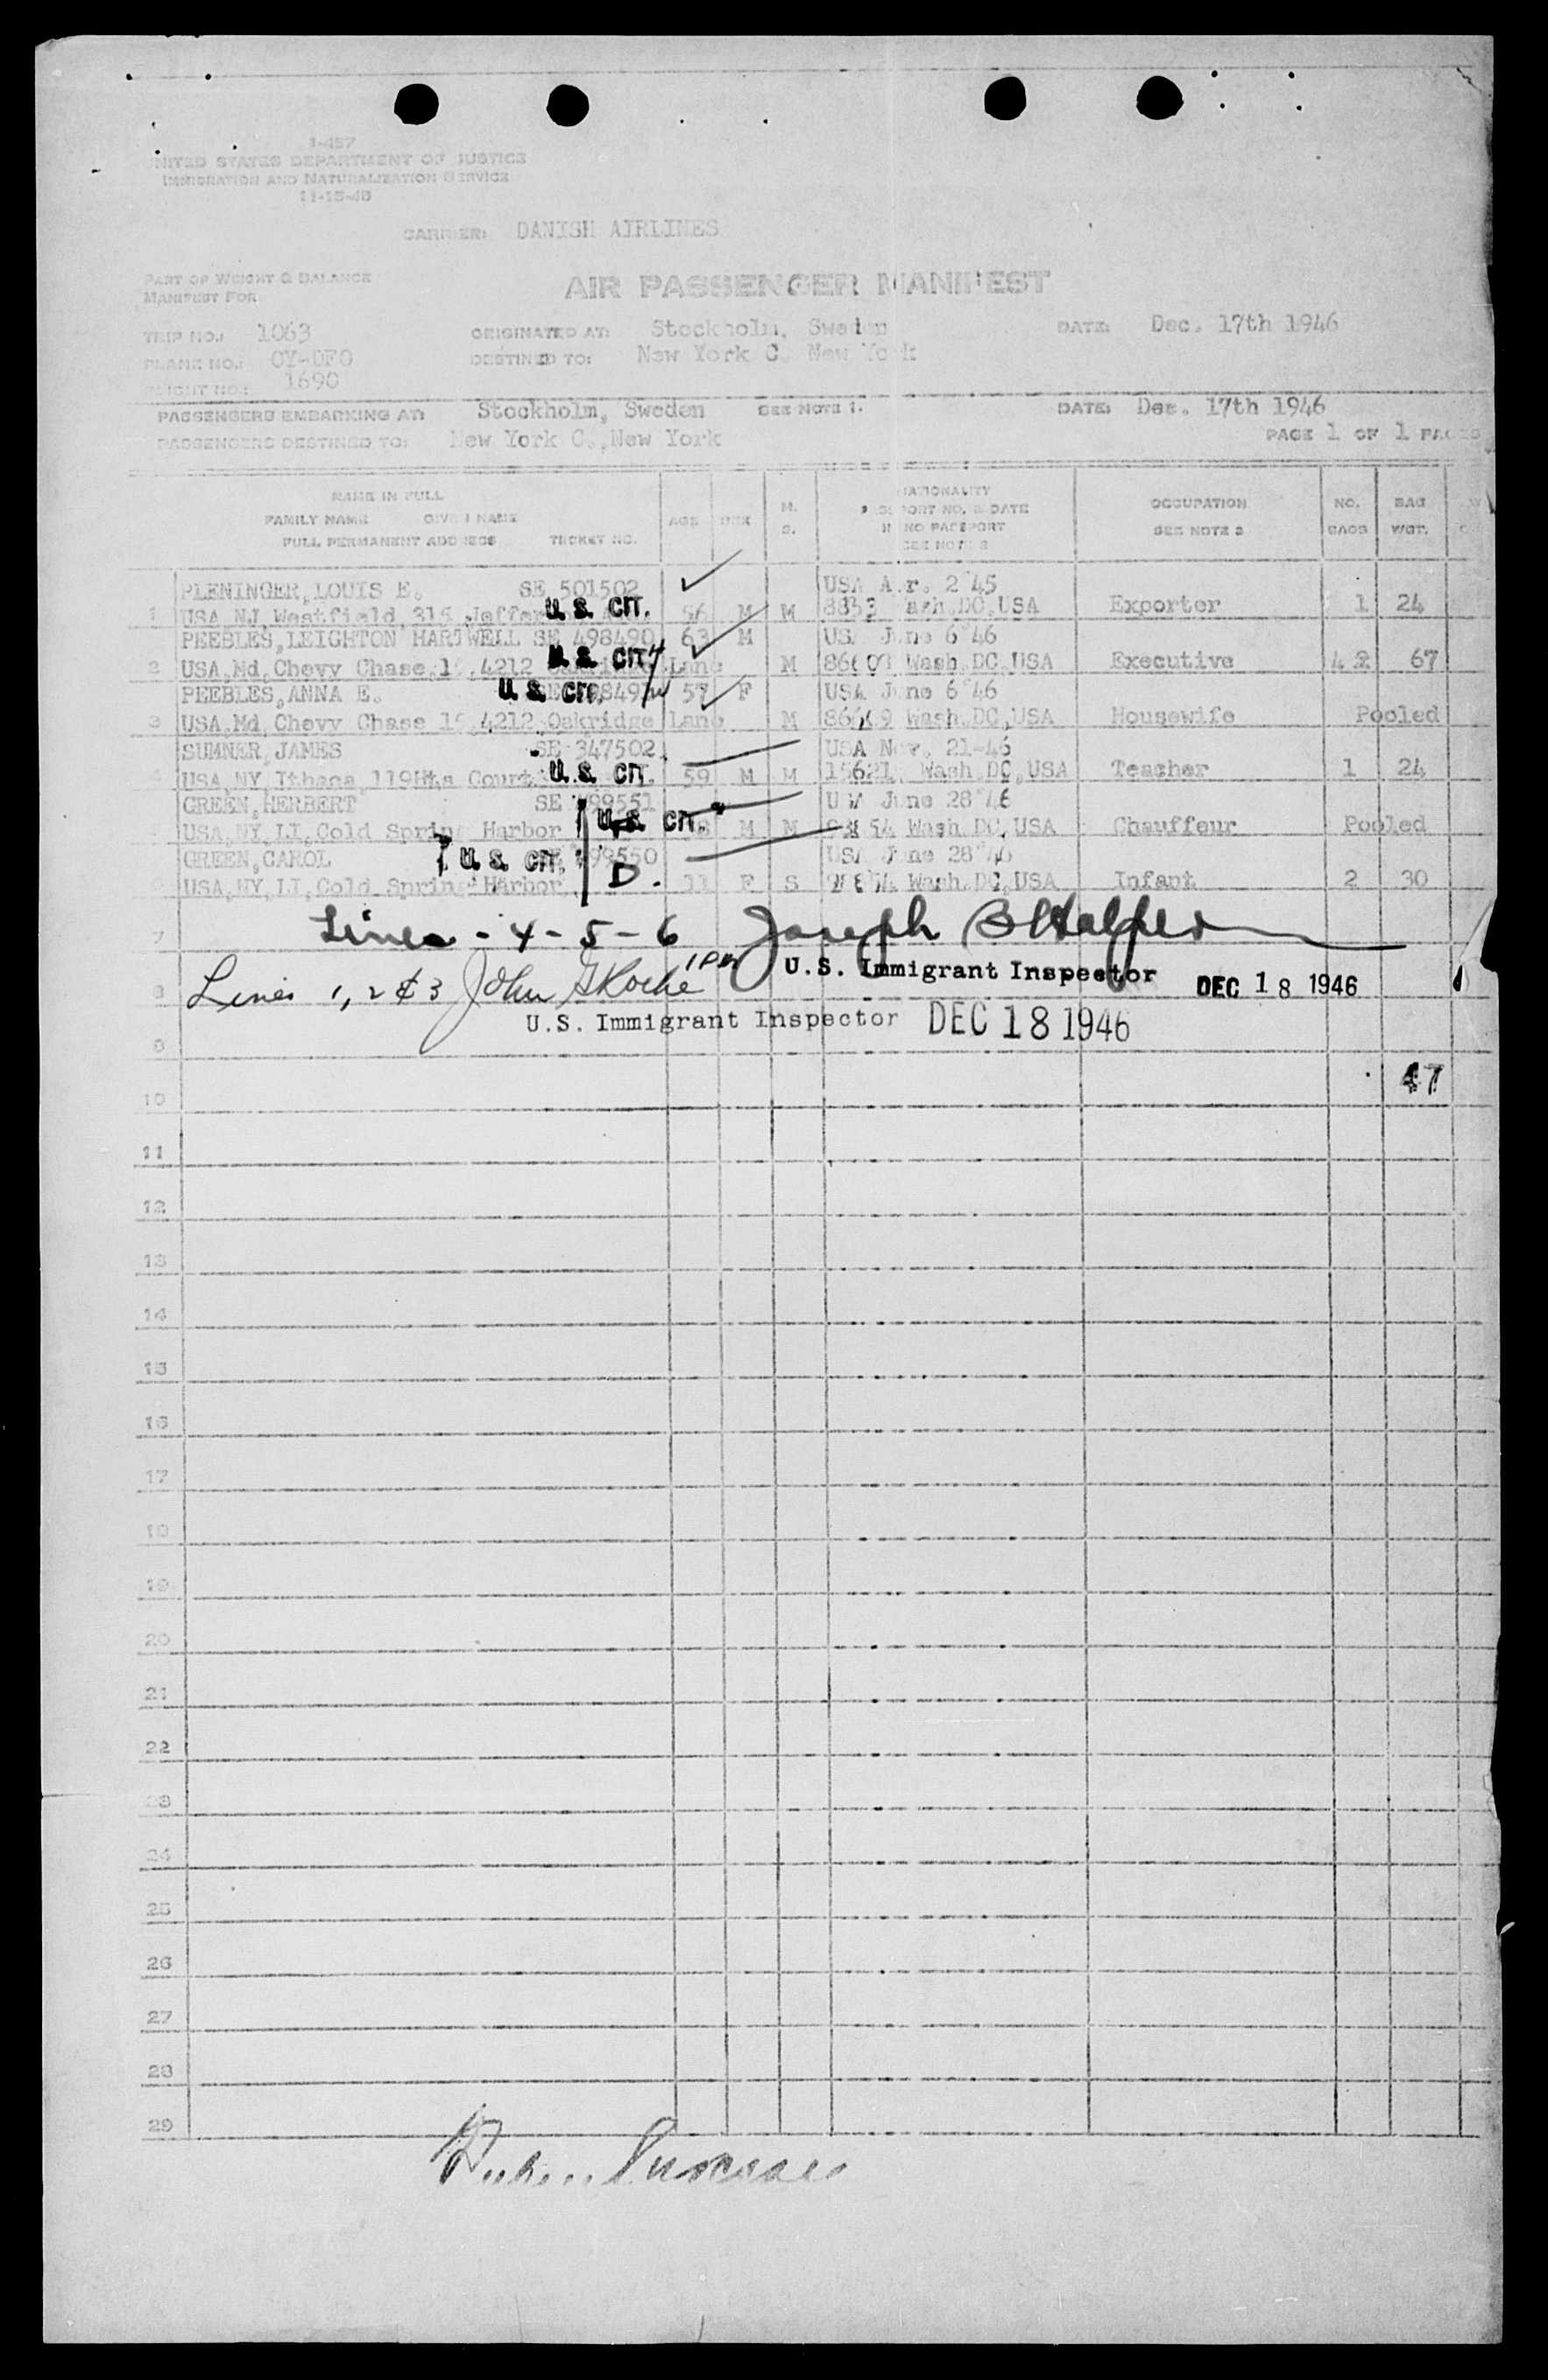 I-457
UNITED STATES DEPARTMENT OF JUSTICE
IMMIGRATION AND NATURALIZATION SERVICE
11-15-45
CARRIER: DANISH AIRLINES
PART OF WEIGHT & BALANCE
MANIFEST FOR
AIR PASSENGER MANIFEST
TRIP NO.: 1063 ORIGINATED AT: Stockholm, Sweden DATE: Dec. 17th 1946
PLANE NO.: OY-DFO DESTINED TO: New York C, New York
FLIGHT NO.: 1690
PASSENGERS EMBARKING AT: Stockholm, Sweden SEE NOTE 1. DATE: Dec. 17th 1946
PASSENGERS DESTINED TO: New York C.,New York
PAGE 1 OF 1 PAGES
NAME IN FULL NATIONALITY
FAMILY NAME GIVEN NAME AGE SEX M. PASSPORT NO. & DATE OCCUPATION NO. BAG
FULL PERMANENT ADDRESS TICKET NO. S. IF NO PASSPORT SEE NOTE 3 BAGS WGT.
SEE NOTE 2
PLENINGER,LOUIS E. SE 501502 USA 2 45
1 USA,NJ,Westfield,315 U. S. CIT. 56 M M Wash,DC,USA Exporter 1 24
PEEBLES,LEIGHTON HARTWELL SE 498490 63 M USA June 6 46
2 USA,Md,Chevy Chase,15,4212 U. S. CIT. Lane M Wash,DC,USA Executive 67
PEEBLES,ANNA E. U. S. CIT. 57 F USA June 6 46
3 USA,Md,Chevy Chase 15,4212,Oakridge Lane M Wash,DC,USA Housewife Pooled
SUMNER,JAMES SE 347502 USA Nov. 21-46
4 USA,NY,Ithaca,119Hts Court U. S. CIT. 59 M M Wash,DC,USA Teacher 1 24
GREEN,HERBERT SE 499551 USA June 28 46
USA,NY,LI,Cold Spring Harbor U. S. CIT. M M Wash DC,USA Chauffeur Pooled
GREEN,CAROL U. S. CIT. 499550 USA June 28 46
6 USA,NY,LI,Cold Spring Harbor D. 11 F S Wash,DC,USA Infant 2 30
7 Lines - 4 - 5 - 6 Joseph B Halpern
U.S. Immigrant Inspector DEC 18 1946
8 Lines 1, 2 & 3 John G Roche
U.S. Immigrant Inspector DEC 18 1946
9
47
10
11
12
13
14
15
16
17
18
19
20
21
22
23
24
25
26
27
28
29